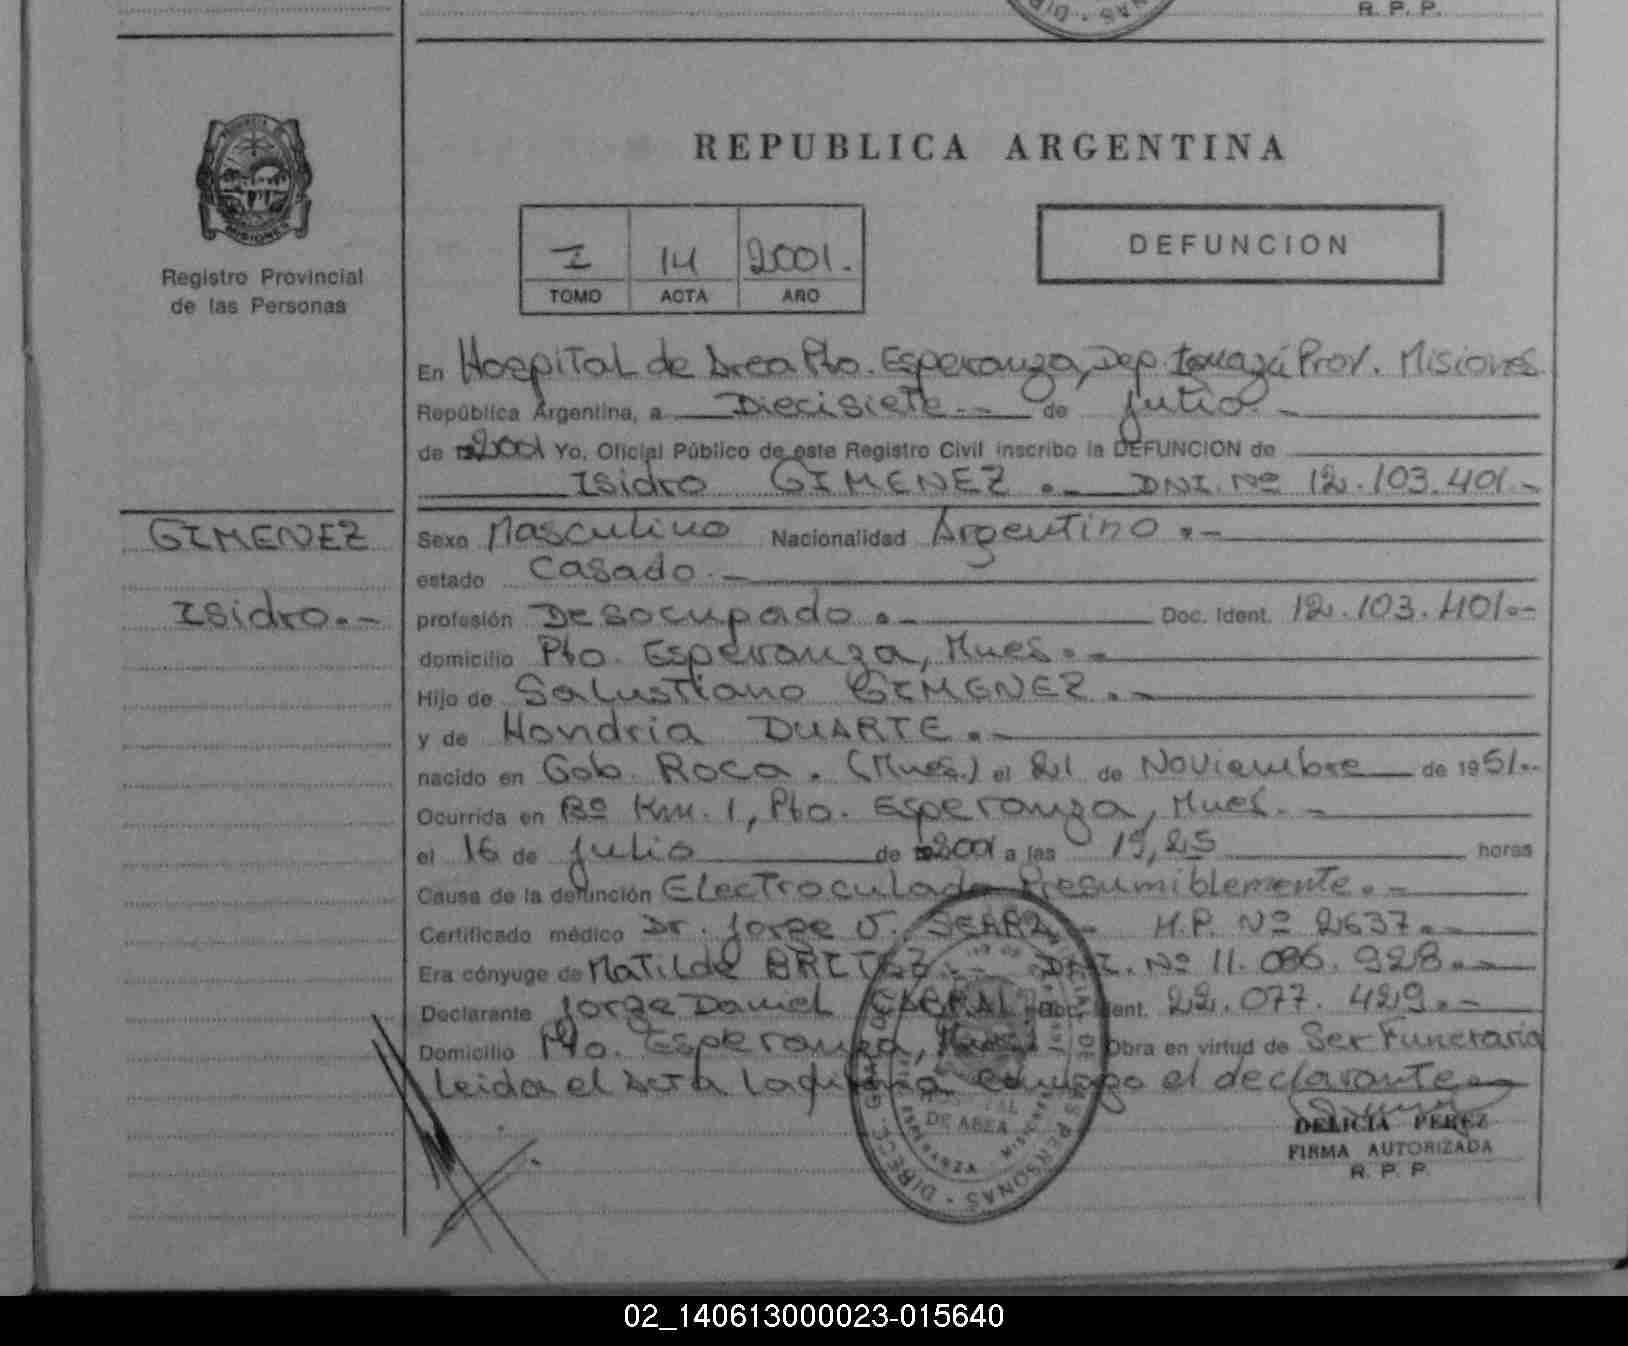 R. P. P.
REPUBLICA ARGENTINA
MISIONES
Registro Provincial
de las Personas
I 14 2001.
TOMO ACTA AÑO
DEFUNCION
En Hospital de Area Pto. Esperanza, Dep. Iguazú Prov. Misiones
República Argentina, a Diecisiete.- de julio.-
de 2001 Yo, Oficial Público de este Registro Civil inscribo la DEFUNCION de
Isidro GIMENEZ.- DNI. Nº 12.103.401.-
GIMENEZ
Isidro.-
Sexo Masculino Nacionalidad Argentino.-
estado Casado.-
profesión Desocupado.- Doc. Ident. 12.103.401.-
domicilio Pto. Esperanza, Mnes.-
Hijo de Salustiano GIMENEZ.-
y de Hondria DUARTE.-
nacido en Gob. Roca. (Mnes.) el 21 de Noviembre de 1951.-
Ocurrida en Bº Km. 1, Pto. Esperanza, Mnes.-
el 16 de julio de 2001 a las 19,25 horas
Causa de la defunción Electroculado Presumiblemente.-
Certificado médico Dr. Jorge J. M.P. Nº 2637.-
Era cónyuge de Matilde BRITEZ.- DNI. Nº 11.086.928.-
Declarante Jorge Daniel CABRAL Doc. Ident. 22.077.429.-
Domicilio Pto. Esperanza, Obra en virtud de Ser Funeraria
Leida el Acta la conmigo el declarante.-
DE AREA
DELICIA PEREZ
FIRMA AUTORIZADA
R. P. P.
02_140613000023-015640